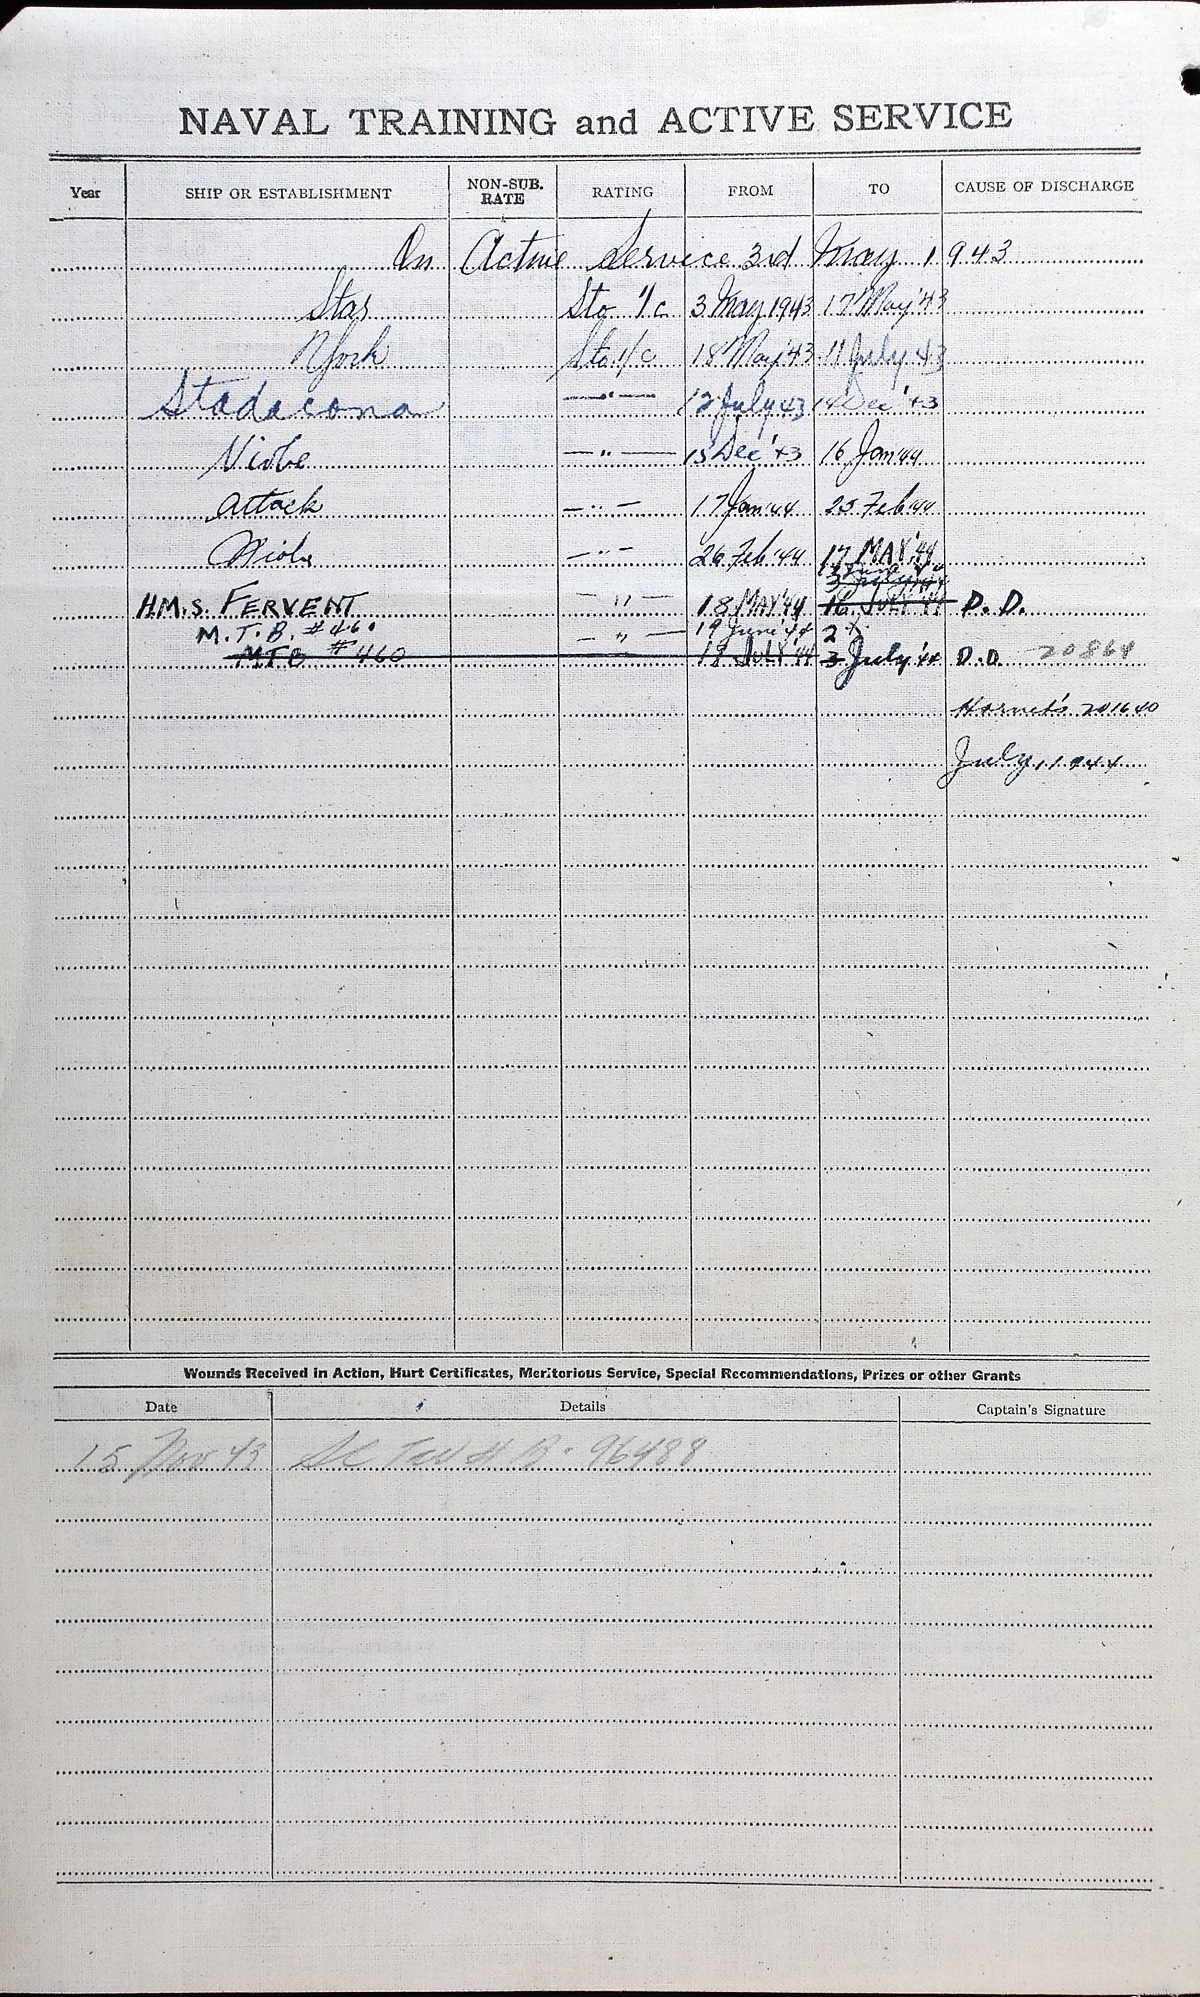 NAVAL TRAINING and ACTIVE SERVICE
Year SHIP OR ESTABLISHMENT NON-SUB. RATE RATING FROM TO CAUSE OF DISCHARGE
On Active Service 3rd May 1943
Star Sto 1/c 3 May 1943 17 May '43
York Sto 1/c 18 May '43 11 July 43
Stadacona — " — 12 July 43 14 Dec '43
Niobe — " — 15 Dec '43 16 Jan '44
Attack — " — 17 Jan '44 25 Feb '44
Niobe — " — 26 Feb '44 17 MAY '44
3 July '44
H.M.S. FERVENT — " — 18 MAY '44 16 JULY '44 D.D.
M.T.B. #460 — " — 19 June '44 2
MTB #460 — " — 18 JULY '44 3 July '44 D.D 20864
Hornet's 201640
July, 1944
Wounds Received in Action, Hurt Certificates, Meritorious Service, Special Recommendations, Prizes or other Grants
Date Details Captain's Signature
15 Nov 43 96488